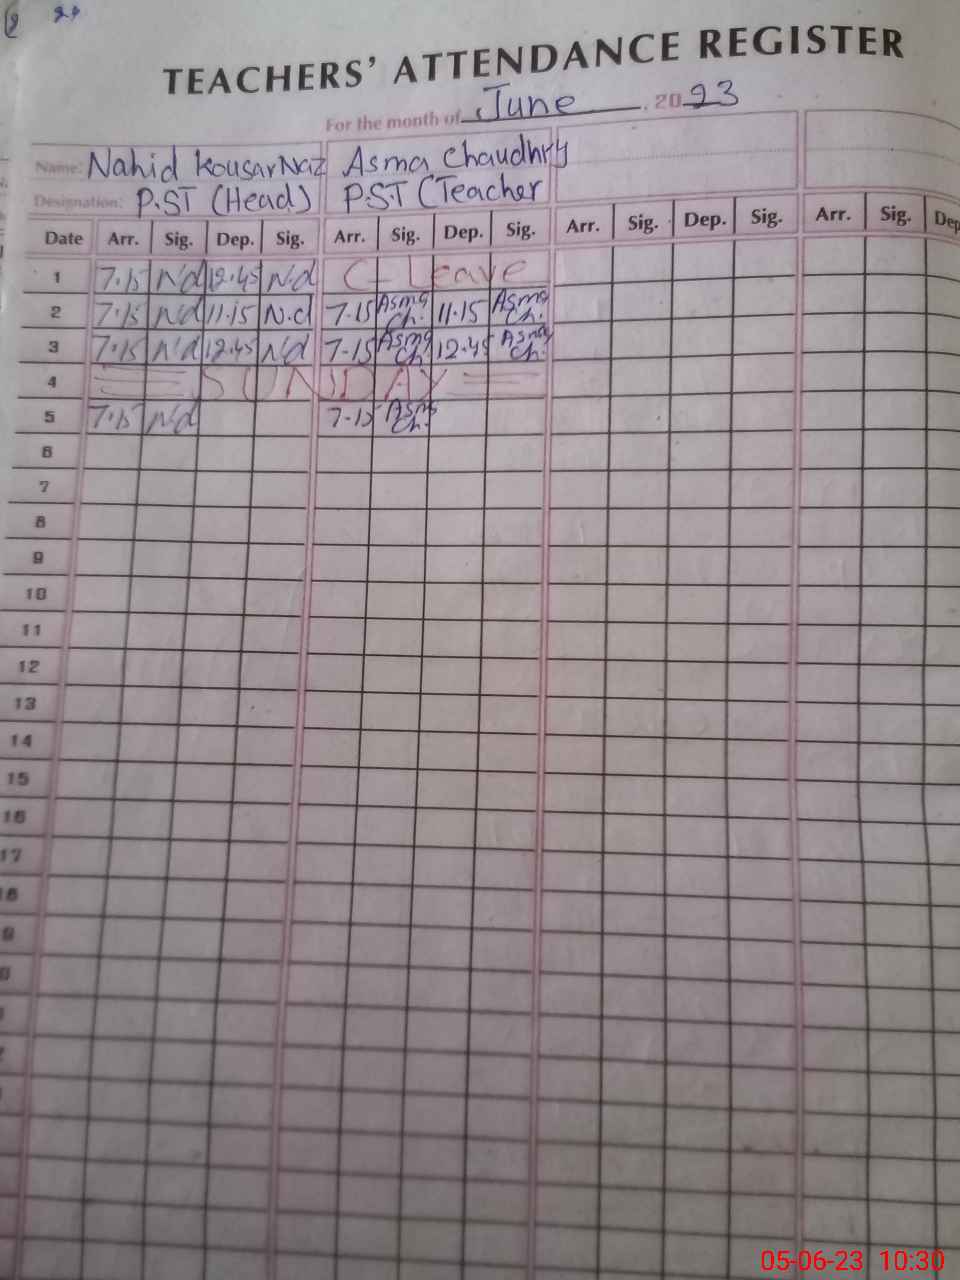 TEACHERS' ATTENDANCE REGISTER
For the month of June, 2023
Name: Nahid Kousar Naz Asma Chaudhry
Designation: P.ST (Head) P.S.T (Teacher
Date Arr. Sig. Dep. Sig. Arr. Sig. Dep. Sig. Arr. Sig. Dep. Sig. Arr. Sig. Dep
1 7.15 N.d 12.45 N.d C- Leave
2 7.15 N.d 11.15 N.d 7-15 Asma Ch. 11.15 Asma Ch.
3 7.15 N.d 12.45 N.d 7-15 Asma Ch. 12.45 Asma Ch.
4 SUNDAY
5 7.15 N.d 7-15 Asma Ch.
6
7
8
9
10
11
12
13
14
15
16
17
05-06-23 10:30